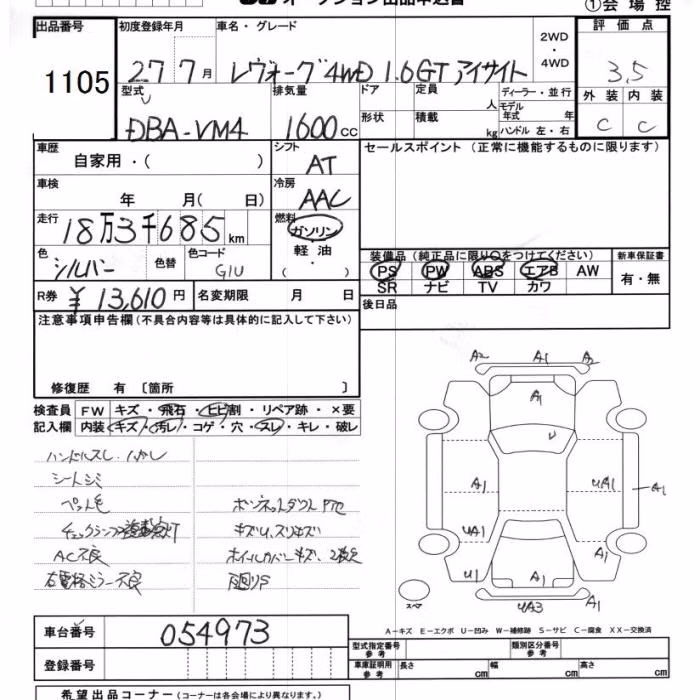 オークション出品申込書
①会場控
出品番号 初度登録年月 車名・グレード 2WD・4WD 評価点
1105 27 7月 レヴォーグ 4WD 1.6GT アイサイト 3,5
型式 排気量 ドア 定員 人 ディーラー・並行 外装 内装
DBA-VM4 1600cc 形状 積載 kg モデル年式 年 ハンドル 左・右 C C
車歴 シフト セールスポイント (正常に機能するものに限ります)
自家用・( ) AT
車検 冷房
年 月( 日) AAC
走行 燃料
18万3千685km ガソリン
色 色替 色コード 軽油
シルバー G1U ・( )
装備品 (純正品に限り○をつけてください) 新車保証書
PS PW ABS エアB AW 有・無
SR ナビ TV カワ
R券 ¥13,610円 名変期限 月 日
後日品
注意事項申告欄(不具合内容等は具体的に記入して下さい)
修復歴 有 [箇所 ]
検査員 FW キズ・飛石・ヒビ割・リペア跡・×要
記入欄 内装 キズ・汚レ・コゲ・穴・スレ・キレ・破レ
ハンドルスレ
シートシミ
ペット毛
ボンネットダクト
チェックランプ 点灯
キズU,スリキズ
AC不良
ホイールカバーキズ
右電格ミラー不良
A2 A1 A2
A1
U
A1 UA1 A1
UA1
U1 A1 A1
スペア UA3 A1
A-キズ E-エクボ U-凹み W-補修跡 S-サビ C-腐食 XX-交換済
車台番号 054973
登録番号
型式指定番号 参考 類別区分番号 参考
車庫証明用 参考 長さ cm 幅 cm 高さ cm
希望出品コーナー (コーナーは各会場により異なります。)